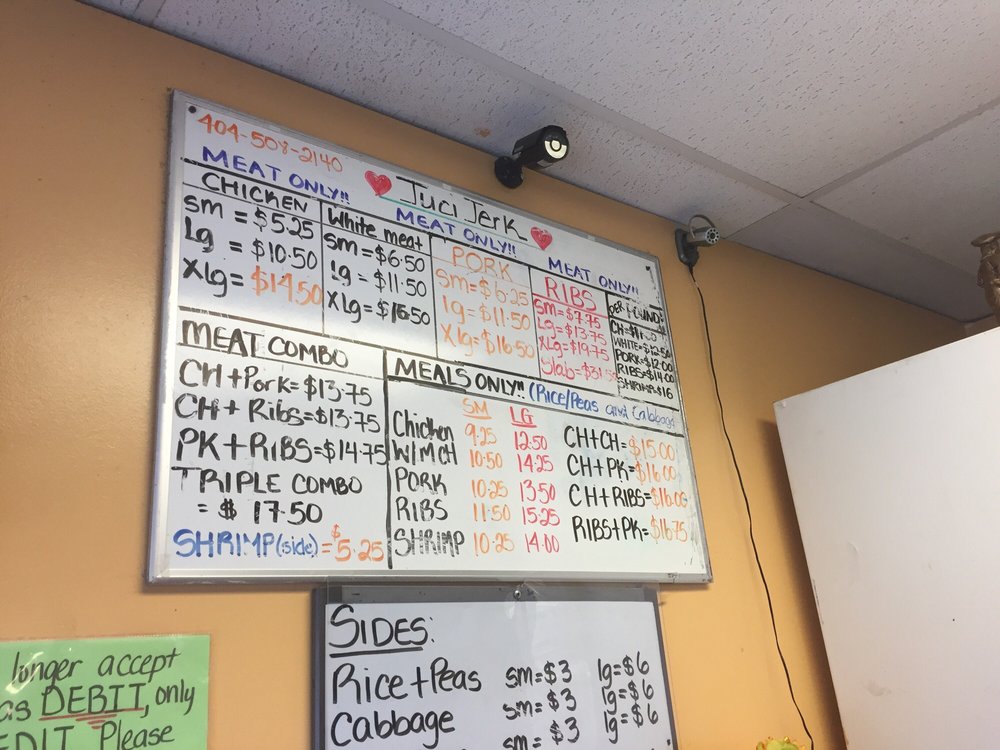 404-508-2140
Juci Jerk
MEAT ONLY!!
MEAT ONLY!!
MEAT ONLY!!
CHICKEN
sm = $5.25
Lg = $10.50
XLg = $14.50
White meat
sm = $6.50
lg = $11.50
XLg = $16.50
PORK
sm = $6.25
lg = $11.50
Xlg = $16.50
RIBS
sm = $7.75
Lg = $13.75
XLg = $19.75
Slab = $31.
PER POUND
CH =
WHITE = $12.50
PORK = $12.00
RIBS = $14.00
SHRIMP = $16
MEAT COMBO
CH + Pork = $13.75
CH + Ribs = $13.75
PK + RIBS = $14.75
TRIPLE COMBO
= $ 17.50
SHRIMP (side) = $5.25
MEALS ONLY!! (Rice/Peas and Cabbage
SM LG
Chicken 9.25 12.50
W/M CH 10.50 14.25
PORK 10.25 13.50
RIBS 11.50 15.25
SHRIMP 10.25 14.00
CH+CH = $15.00
CH+PK = $16.00
CH+RIBS = $16.00
RIBS+PK = $16.75
SIDES:
Rice + Peas sm = $3 lg = $6
Cabbage sm = $3 lg = $6
sm = $3 lg = $6
longer accept
as DEBIT, only
EDIT Please